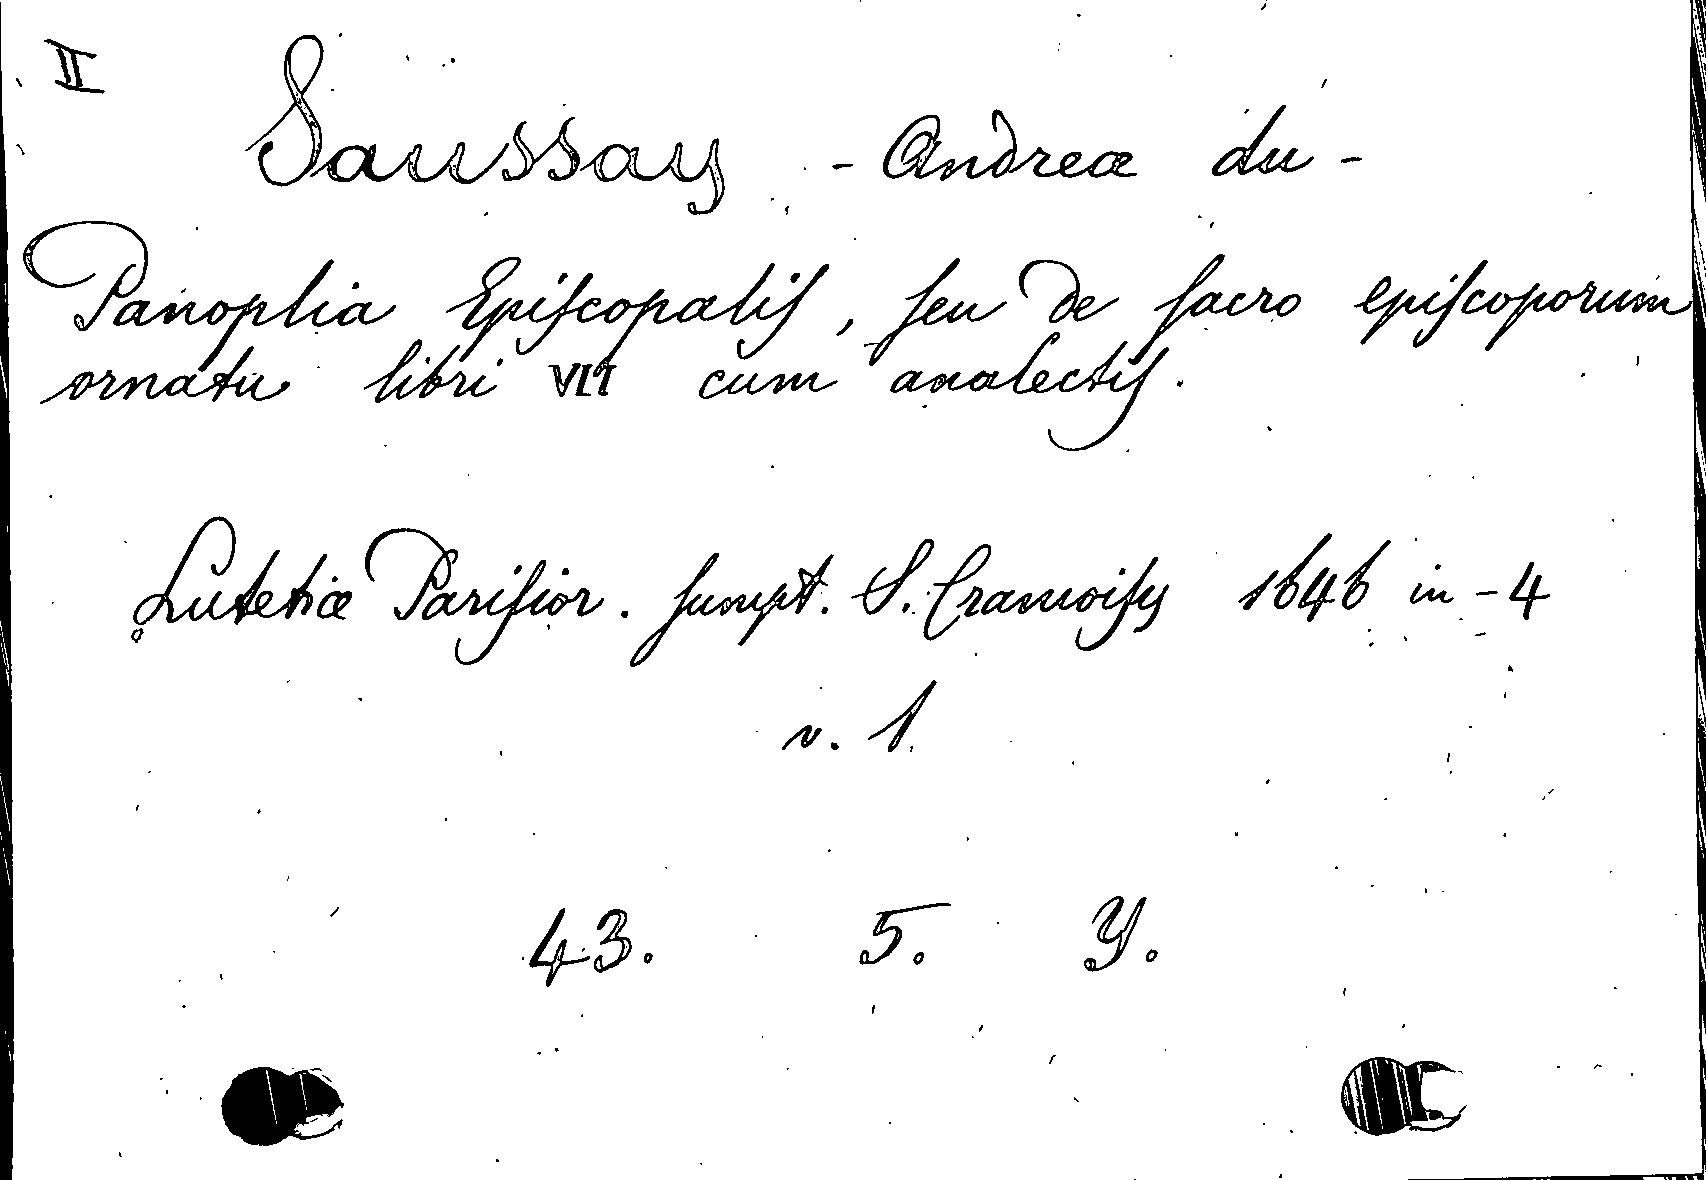 II
Saussay - Andreæ du -
Panoplia Episcopalis, seu de sacro episcoporum
ornatu libri VII cum analectis.
Lutetiæ Parisior. sumpt. S. Cramoisy 1646 in-4
v. 1
43. 5. Y.